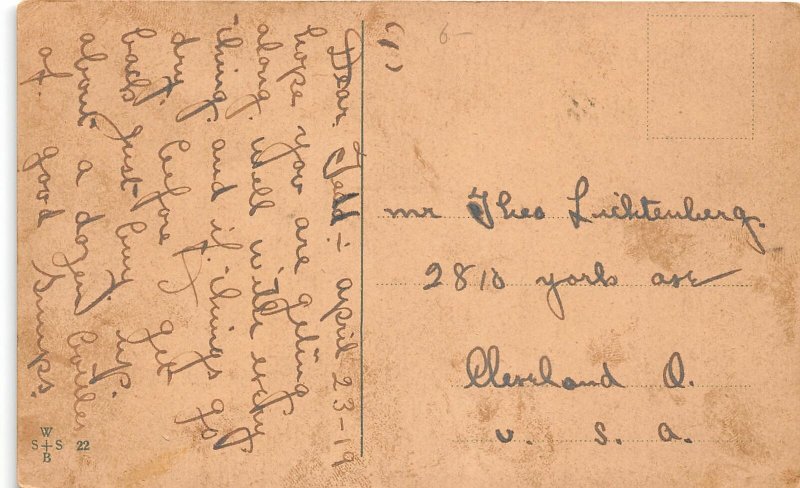 (1)
6-
Dear Tedd :- april 23-19
hope you are geting
along well with every
thing. and if things go
dry. before I get
back just buy up.
about a dozen Cooler
of. good Snaps.
mr Theo Lichtenberg.
2810 york ave
Cleveland O.
u. S. a.
W
S S 22
B